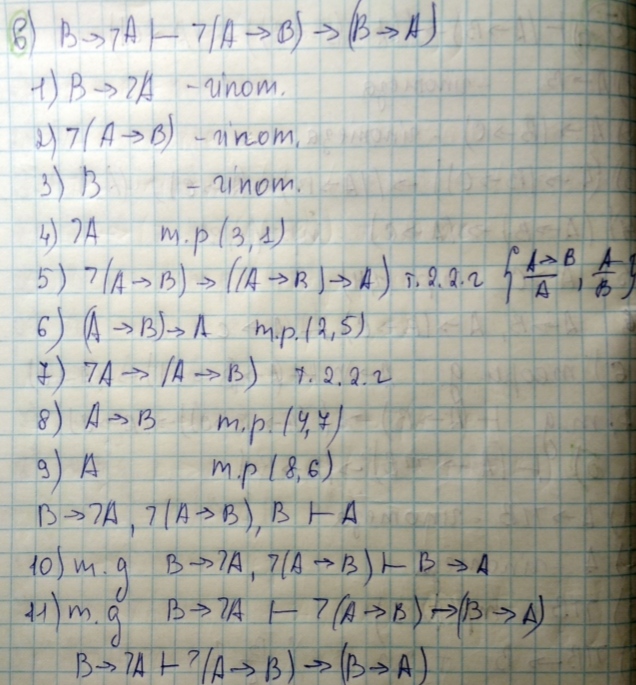 в) B→7A ⊢ 7(A→B)→(B→A)
1) B→7A - гіпот.
2) 7(A→B) - гіпот.
3) B - гіпот.
4) 7A m.p (3,1)
5) 7(A→B)→((A→B)→A) т.2.2.г {A→B/A, A/B}
6) (A→B)→A m.p.(2,5)
7) 7A→(A→B) т.2.2.г
8) A→B m.p.(4,7)
9) A m.p (8,6)
B→7A, 7(A→B), B ⊢ A
10) т.д B→7A, 7(A→B) ⊢ B→A
11) т.д B→7A ⊢ 7(A→B)→(B→A)
B→7A ⊢ 7(A→B)→(B→A)